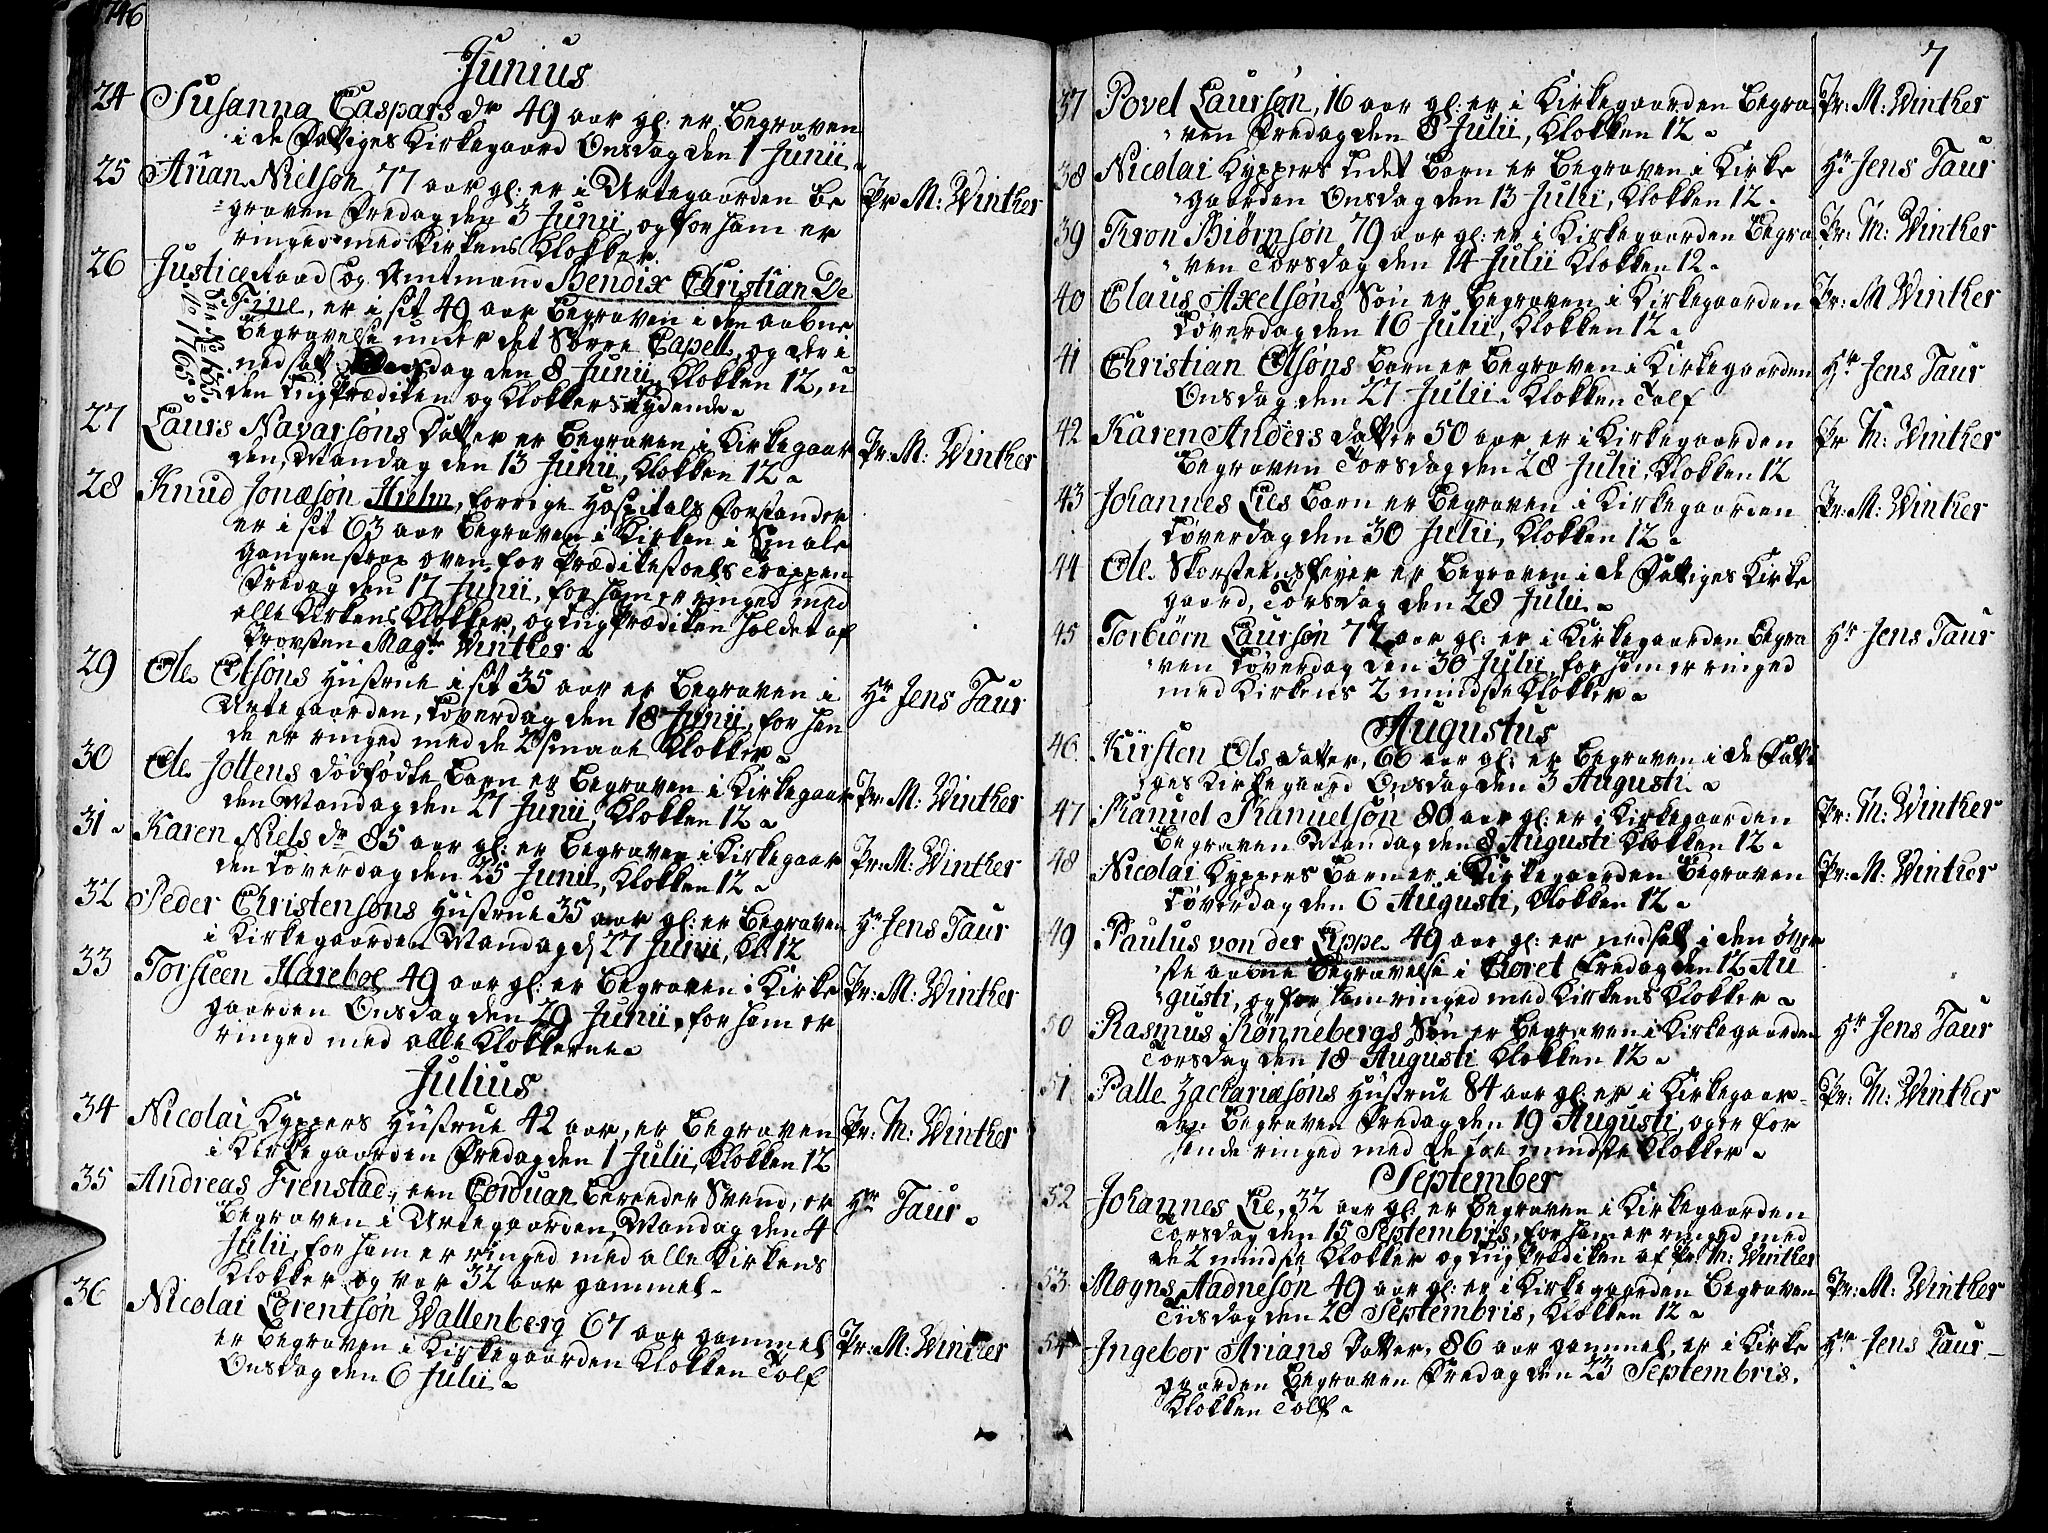 1746
Junius
24 Susanna Caspars dr 49 aar gl: er Begraven
i de Fattiges Kirkegaard Onsdag den 1 Junii
25 Arian Nielsøn 77 aar gl: er i Urtegaarden Be
graven Fredag den 3 Junii, og for ham er
ringed med Kirkens Klokker.
Pr M: Winther
26 Justice Raad og Amtmand Bendix Christian De
Fine, er i sit 49 aar Begraven i den aabne
Begravelse under det Søre Capell, og der i
nedsatt Onsdag den 8 Junii, Klokken 12, u
den Liig Prædiken og Klokkers Lydende.
See No 135.
Ao 1765
27 Laurs Navarsøns Datter er Begraven i Kirkegaar
den, Mandag den 13 Junii, Klokken 12.
Pr: M: Winther
28 Knud Jonæsøn Hielm, forrige Hospitals Forstander
er i sit 63 aar Begraven i Kirken i Smale
gangen strax oven for Prædikestoels Trappen
Fredag den 17 Junii, for ham er ringed med
alle Kirkens Klokker, og Liig Prædiken holdet af
Provsten Magr Winther.
29 Ole Olsøns Hustrue i sit 35 aar er Begraven i
Urtegaarden, Løverdag den 18 Junii, for hen
de er ringed med de 2 smaae Klokker.
Hr Jens Taur
30 Ole Joltens dødfødte Barn er Begraven i Kirkegaar
den Mandag den 27 Junii, Klokken 12.
Pr: M: Winther
31 Karen Niels dr 85 aar gl: er Begraven i Kirkegaar
den Løverdag den 25 Junii, Klokken 12.
Pr: M: Winther
32 Peder Christensøns Hustrue 35 aar gl: er Begraven
i Kirkegaarden Mandag d 27 Junii, Kl: 12
Hr Jens Taur
33 Torsteen Hareboe 49 aar gl: er Begraven i Kirke
gaarden Onsdag den 29 Junii, for ham er
ringed med alle Klokkerne.
Pr: M: Winther
Julius
34 Nicolai Kyppers Hustrue 42 aar, er Begraven
i Kirkegaarden Fredag den 1 Julii, Klokken 12
Pr: M: Winther
35 Andreas Frenstad, een Corduan Bereeder Svend, er
Begraven i Urtegaarden, Mandag den 4
Julii, for ham er ringed med alle Kirkens
Klokker og var 32 aar gammel.
Hr Taur.
36 Nicolai Lorentsøn Wallenberg 67 aar gammel
er Begraven i Kirkegaarden Klokken Tolf
Onsdag den 6 Julii.
Pr: M: Winther
7
37 Povel Laursøn, 16 aar gl: er i Kirkegaarden Begra
ven Fredag den 8 Julii, Klokken 12.
Pr: M: Winther
38 Nicolai Kyppers Lidet Barn er Begraven i Kirke
gaarden Onsdag den 13 Julii, Klokken 12.
Hr Jens Taur
39 Tron Biørnsøn 79 aar gl: er i Kirkegaarden Begra
ven Torsdag den 14 Julii Klokken 12.
Pr: M: Winther
40 Claus Axelsøns Søn er Begraven i Kirkegaarden
Løverdag den 16 Julii, Klokken 12.
Pr: M Winther
41 Christian Olsøns Barn er Begraven i Kirkegaarden
Onsdag den 27 Julii Klokken Tolf
Hr Jens Taur
42 Karen Anders datter 50 aar er i Kirkegaarden
Begraven Torsdag den 28 Julii, Klokken 12
Pr M: Winther
43 Johannes Lies Barn er Begraven i Kirkegaarden
Løverdag den 30 Julii, Klokken 12.
Pr: M: Winther
44 Ole Skorsteensfeyer er Begraven i de Fattiges Kirke
gaard, Torsdag den 28 Julii.
45 Torbiørn Laursøn 77 aar gl: er i Kirkegaarden Begra
ven Løverdag den 30 Julii, for ham er ringed
med Kirkens 2 mindste Klokker.
Hr Jens Taur
Augustus
46 Kirsten Ols datter, 66 aar gl: er Begraven i de Fatti
ges Kirkegaard Onsdag den 3 Augusti.
47 Samuel Samuelsøn 80 aar gl: er i Kirkegaarden
Begraven Mandag den 8 Augusti Klokken 12.
Pr: M: Winther
48 Nicolai Kyppers Barn er i Kirkegaarden Begraven
Løverdag den 6 Augusti, Klokken 12.
Pr: M: Winther
49 Paulus von der Lippe 49 aar gl: er nedsat i den øver
ste aabne Begravelse i Koret Fredag den 12 Au
gusti, og for ham ringed med Kirkens Klokker.
50 Rasmus Rønnebergs Søn er Begraven i Kirkegaarden
Torsdag den 18 Augusti Klokken 12.
Hr Jens Taur
51. Palle Zachariæsøns Hustrue 84 aar gl: er i Kirkegaar
den Begraven Fredag den 19 Augusti, og er for
hende ringed med de toe mindste Klokker.
Pr: M: Winther
September
52 Johannes Lie, 32 aar gl: er Begraven i Kirkegaarden
Torsdag den 15 Septembris, for ham er ringed med
de 2 mindste Klokker og Liig Prædiken af Pr: M: Winther
53 Mogns Aadnesøn 49 aar gl: er i Kirkegaarden Begraven
Tiisdag den 20 Septembris, Klokken 12.
Pr: M: Winther
54 Ingebor Arians Datter, 86 aar gammel, er i Kirke
gaarden Begraven Fredag den 23 Septembris.
Klokken Tolf.
Hr Jens Taur